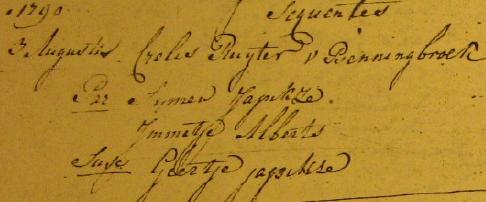 1790. Sequentes
3 Augustus. Crelis Ruyter v Benningbroek
Par Symen Japikze.
Jmmetje Alberts
Susc Geertje japikze